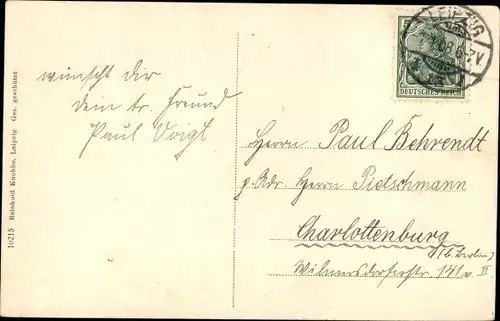 10215 Reinhold Knobbe, Leipzig Ges. geschützt
wünscht dir
dein tr. Freund
Paul Voigt
LEIPZIG
DEUTSCHES REICH
Herrn Paul Behrendt
p. Adr. Herrn Pietschmann
Charlottenburg
(b. Berlin)
Wilmersdorferstr. 141 v. II